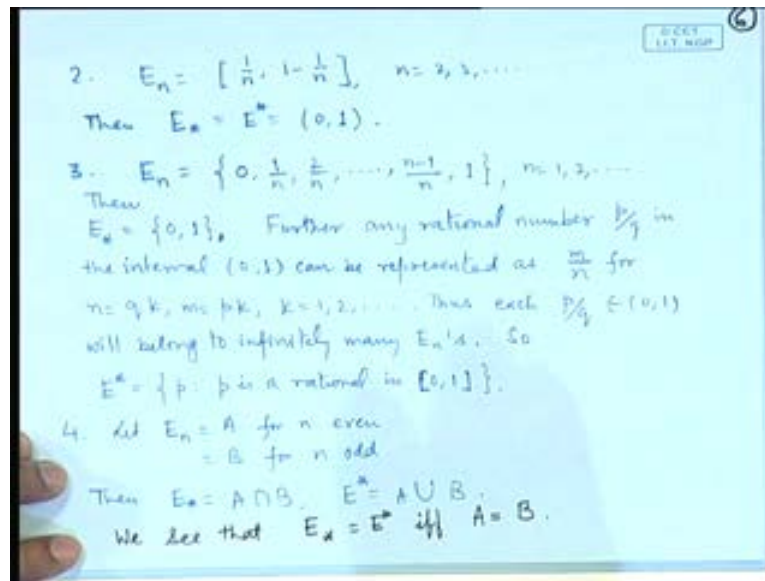 6
I.I.T. KGP
2. E_n = [1/n, 1 - 1/n], n = 2, 3, ....
Then E_* = E^* = (0, 1).
3. E_n = {0, 1/n, 2/n, ...., n-1/n, 1}, n = 1, 2, ....
Then
E_* = {0, 1}. Further any rational number p/q in
the interval (0, 1) can be represented as m/n for
n = qk, m = pk, k = 1, 2, .... Thus each p/q ∈ (0, 1)
will belong to infinitely many E_n's. So
E^* = {p : p is a rational in [0, 1]}.
4. Let E_n = A for n even
= B for n odd
Then E_* = A ∩ B, E^* = A ∪ B.
We see that E_* = E^* iff A = B.